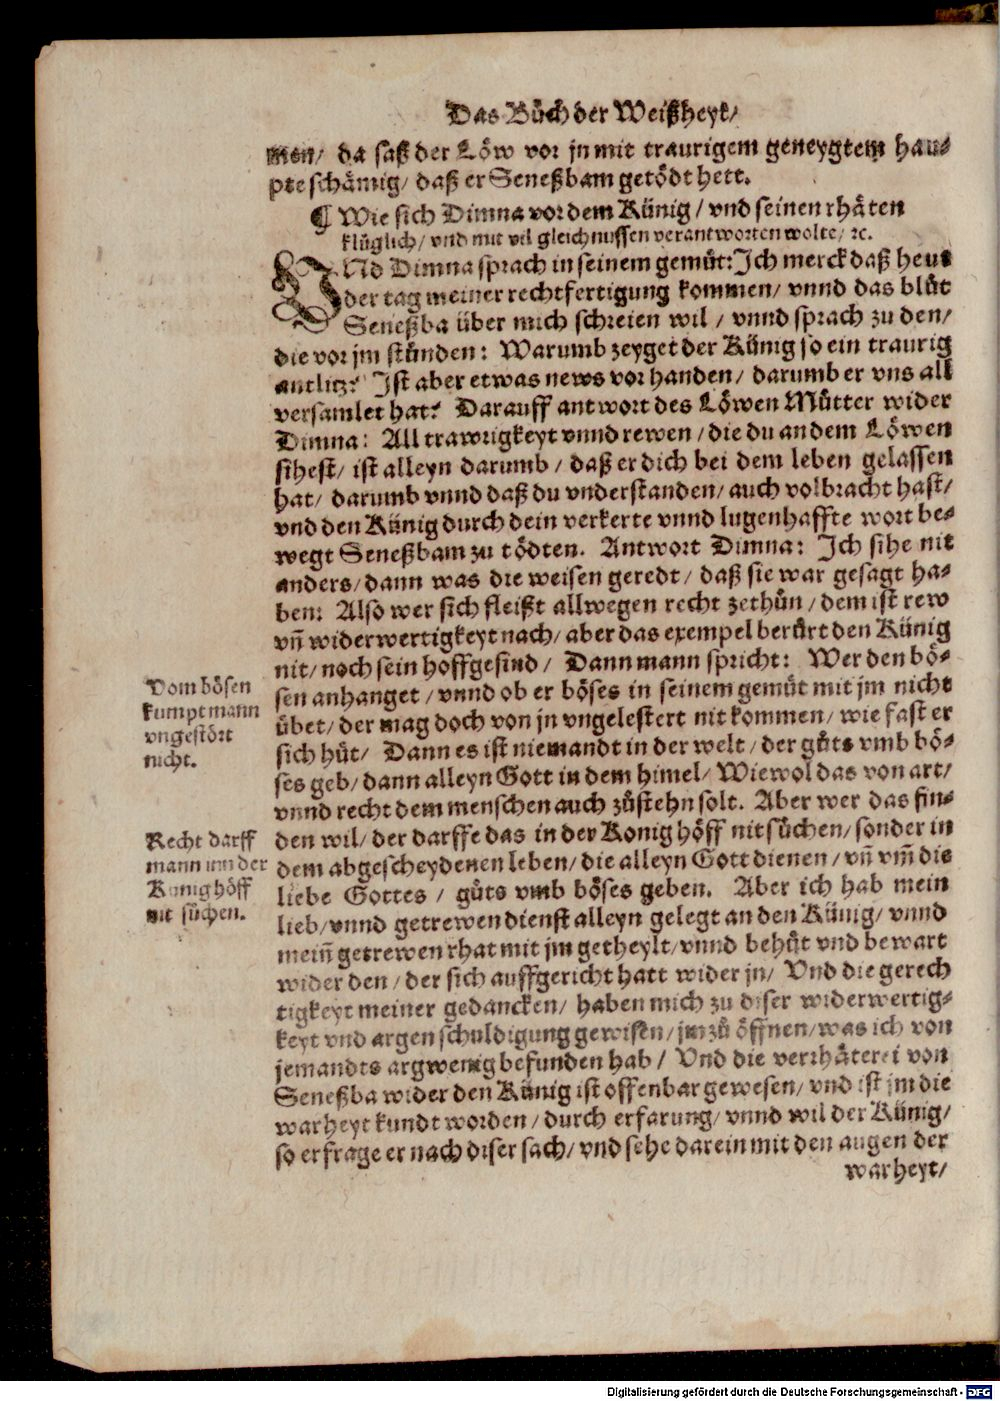 Das Bůch der Weißheyt/
men/ da saß der Löw vor jn mit traurigem geneygtem hau⸗
pte schämig/ daß er Seneßbam getödt hett.
¶ Wie sich Dimna vor dem Künig/ vnd seinen rhäten
klüglich/ vnd mit vil gleichnussen verantworten wolte/ ꝛc.
VNd Dimna sprach in seinem gemüt: Ich merck daß heut
der tag meiner rechtfertigung kommen/ vnnd das blůt
Seneßba über mich schreien wil/ vnnd sprach zu den/
die vor jm stůnden: Warumb zeyget der Künig so ein traurig
antlitz? Ist aber etwas news vorhanden/ darumb er vns all
versamlet hat? Darauff antwort des Löwen Můtter wider
Dimna: All trawrigkeyt vnnd rewen/ die du an dem Löwen
sihest/ ist alleyn darumb/ daß er dich bei dem leben gelassen
hat/ darumb vnnd daß du vnderstanden/ auch volbracht hast/
vnd den Künig durch dein verkerte vnnd lugenhaffte wort be⸗
wegt Seneßbam zu tödten. Antwort Dimna: Ich sihe nit
anders/ dann was die weisen geredt/ daß sie war gesagt ha⸗
ben: Also wer sich fleißt allwegen recht zethůn/ dem ist rew
vñ widerwertigkeyt nach/ aber das exempel berürt den Künig
nit/ noch sein hoffgesind/ Dann mann spricht: Wer den bö⸗
sen anhanget/ vnnd ob er böses in seinem gemüt mit jm nicht
übet/ der mag doch von jn vngelestert nit kommen/ wie fast er
sich hüt/ Dann es ist niemandt in der welt/ der gůts vmb bö⸗
ses geb/ dann alleyn Gott in dem himel/ Wiewol das von art/
vnnd recht dem menschen auch zůstehn solt. Aber wer das fin⸗
den wil/ der darffe das in der Konig höff nit sůchen/ sonder in
dem abgescheydenen leben/ die alleyn Gott dienen/ vñ vm̃ die
liebe Gottes/ gůts vmb böses geben. Aber ich hab mein
lieb/ vnnd getrewen dienst alleyn gelegt an den Künig/ vnnd
meiñ getrewen rhat mit jm getheylt/ vnnd behüt vnd bewart
wider den/ der sich auffgericht hatt wider jn/ Vnd die gerech
tigkeyt meiner gedancken/ haben mich zu diser widerwertig⸗
keyt vnd argen schuldigung gewisen/ jm zů öffnen/ was ich von
jemandts argwenig befunden hab/ Vnd die verrhäterei von
Seneßba wider den Künig ist offenbar gewesen/ vnd ist jm die
warheyt kundt worden/ durch erfarung/ vnnd wil der Künig/
so erfrage er nach diser sach/ vnd sehe darein mit den augen der
warheyt/
Vom bösen
kumpt mann
vngestört
nicht.
Recht darff
mann inn der
Künig höff
nit sůchen.
Digitalisierung gefördert durch die Deutsche Forschungsgemeinschaft - DFG